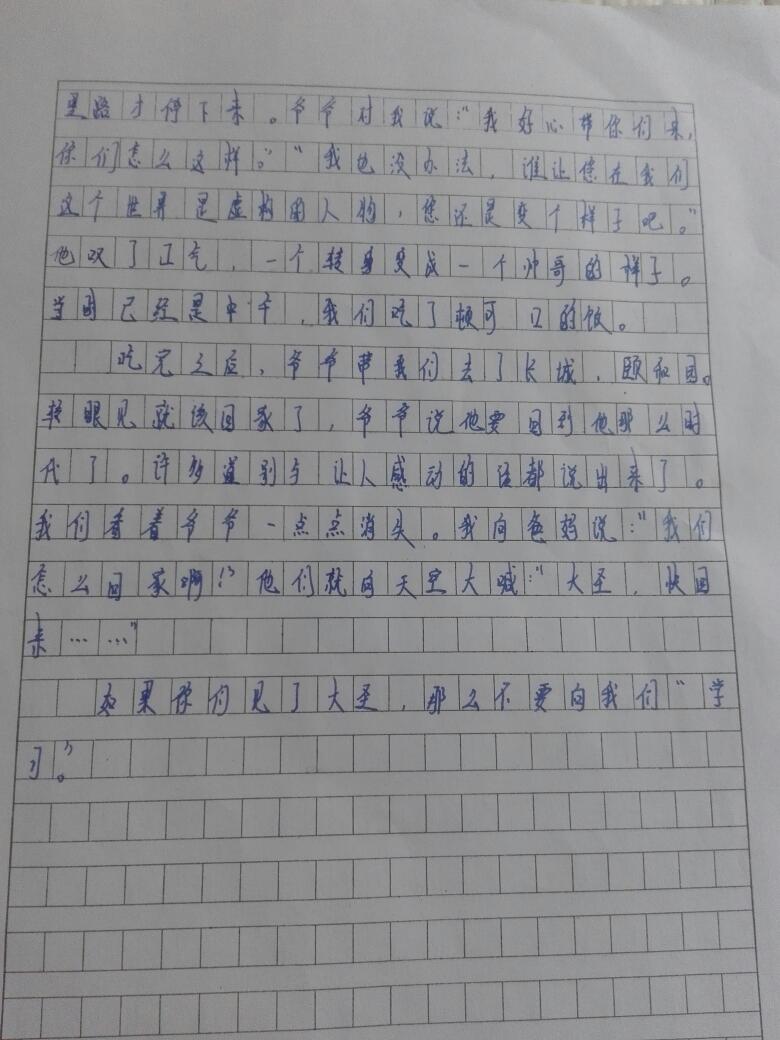 里路才停下来。爷爷对我说：“我好心带你们来，
你们怎么这样。”“我也没办法，谁让您在我们
这个世界是虚构的人物，您还是变个样子吧。”
他叹了口气，一个转身变成一个帅哥的样子。
当时已经是中午，我们吃了顿可口的饭。
吃完之后，爷爷带我们去了长城，颐和园。
转眼见就该回家了，爷爷说他要回到他那么时
代了。许多道别与让人感动的话都说出来了。
我们看着爷爷一点点消失。我向爸妈说：“我们
怎么回家啊！”他们就向天空大喊：“大圣，快回
来……”
如果你们见了大圣，那么不要向我们“学
习”。